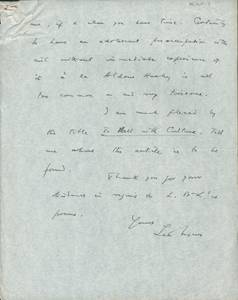 me, if & when you have time. Certainly
to have an adolescent preoccupation with
evil without immediate experience of
it à la Aldous Huxley is all
too common and very tiresome.
I am much pleased by
the title To Hell with Culture. Tell
me where this article is to be
found.
Thank you for your
kindness in regard to L. B-L's
poems.
Yours